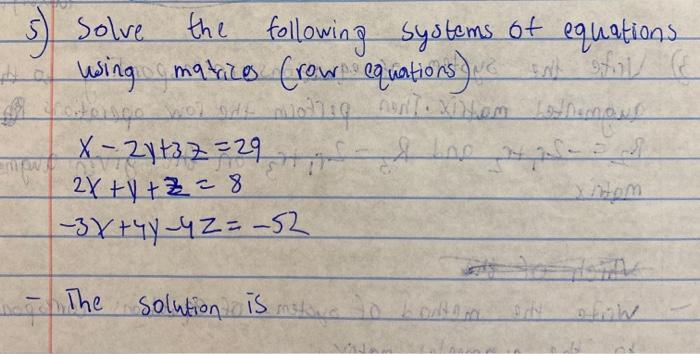 5) Solve the following systems of equations
using matrices (row equations)
x - 2y+3z = 29
2x + y + z = 8
-3x +4y -4z = -52
- The solution is